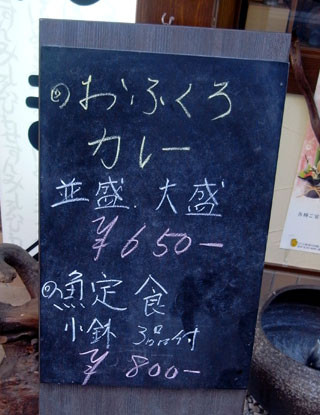 おふくろ
カレー
並盛．大盛
¥650-
魚定食
小鉢 3品付
¥800-